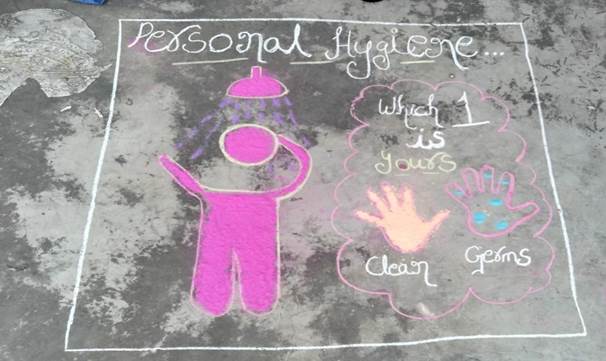 Personal Hygiene...
Which 1
is
yours
Clean
Germs